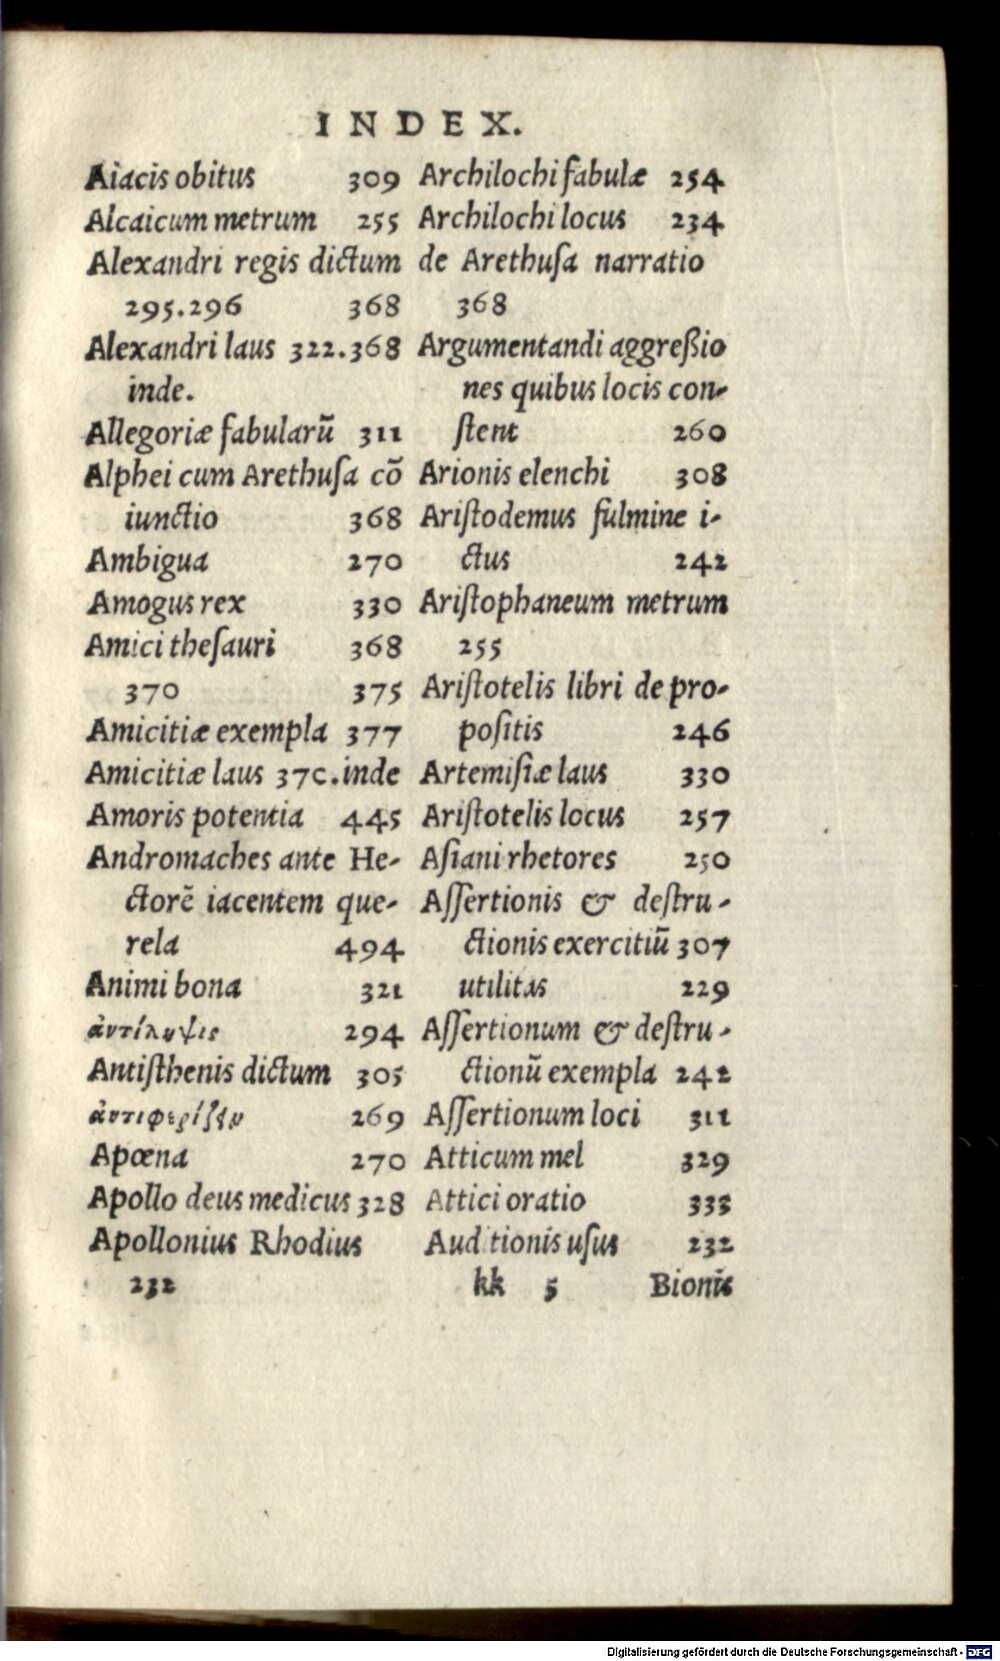 INDEX.
Aiacis obitus 309
Alcaicum metrum 255
Alexandri regis dictum
295.296 368
Alexandri laus 322.368
inde.
Allegoriæ fabularū 311
Alphei cum Arethuſa cō
iunctio 368
Ambigua 270
Amogus rex 330
Amici theſauri 368
370 375
Amicitiæ exempla 377
Amicitiæ laus 37c.inde
Amoris potentia 445
Andromaches ante He-
ctorē iacentem que-
rela 494
Animi bona 321
ἀντίληψις 294
Antiſthenis dictum 305
ἀντιφερίζειν 269
Apœna 270
Apollo deus medicus 328
Apollonius Rhodius
232
Archilochi fabulæ 254
Archilochi locus 234
de Arethuſa narratio
368
Argumentandi aggreßio
nes quibus locis con-
ſtent 260
Arionis elenchi 308
Ariſtodemus fulmine i-
ctus 242
Ariſtophaneum metrum
255
Ariſtotelis libri de pro-
poſitis 246
Artemiſiæ laus 330
Ariſtotelis locus 257
Aſiani rhetores 250
Aſſertionis & deſtru-
ctionis exercitiū 307
utilitas 229
Aſſertionum & deſtru-
ctionū exempla 242
Aſſertionum loci 311
Atticum mel 329
Attici oratio 333
Aud tionis uſus 232
kk 5 Bionis
Digitalisierung gefördert durch die Deutsche Forschungsgemeinschaft - DFG